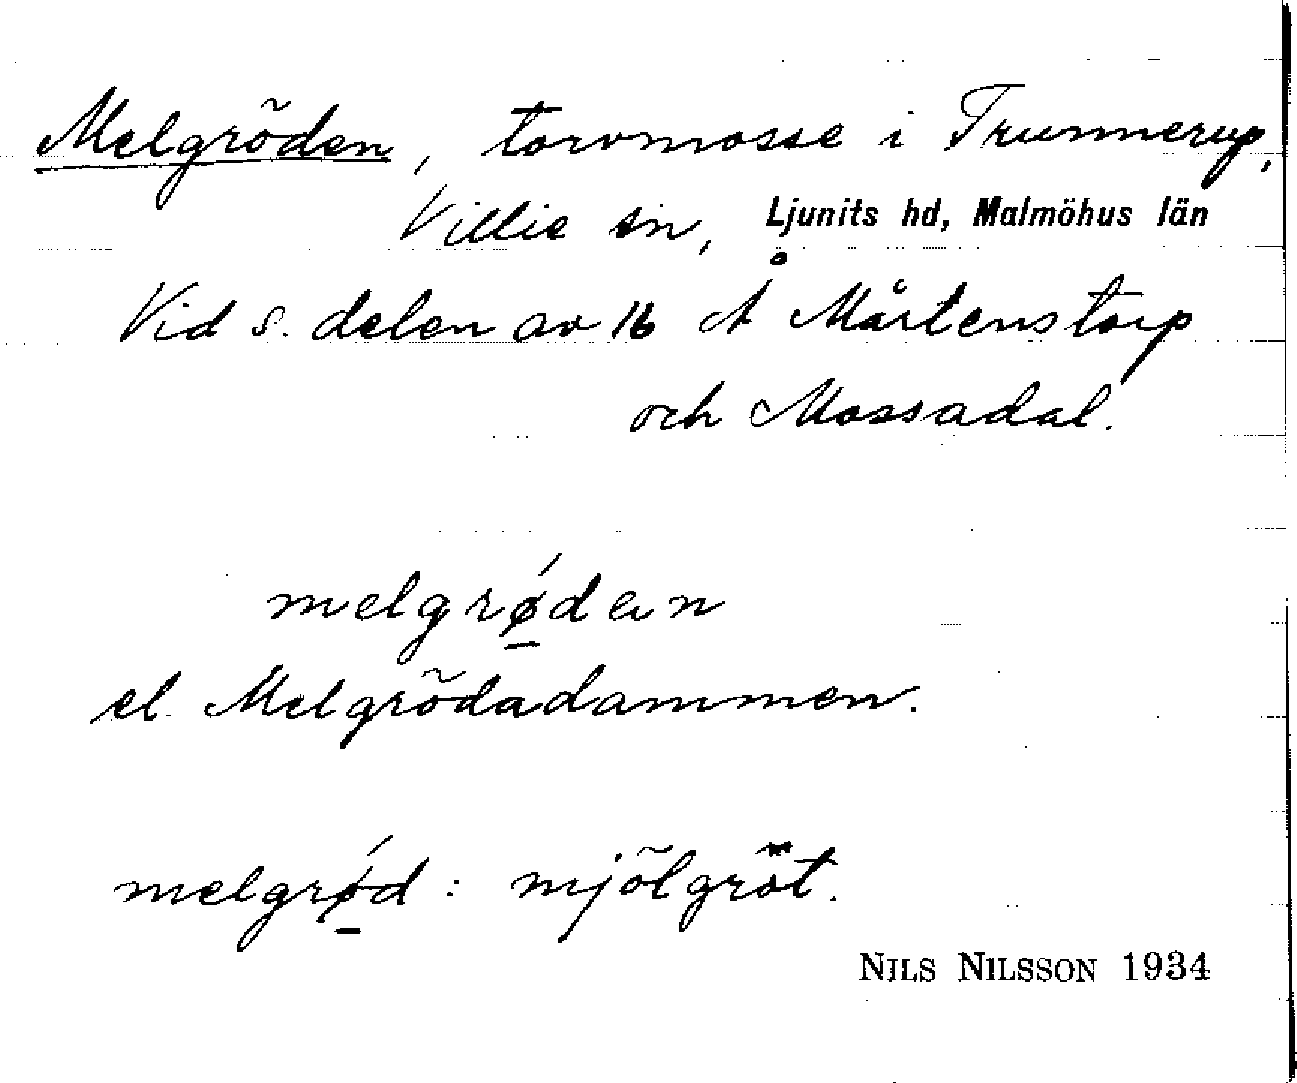 Melgröden, torvmosse i Trunnerup,
Villie sn, Ljunits hd, Malmöhus län
Vid s. delen av 16 A Mårtenstorp
och Mossadal.
melgrǿ̲dan
el. Melgrödadammen.
melgrǿ̲d: mjölgröt.
NILS NILSSON 1934